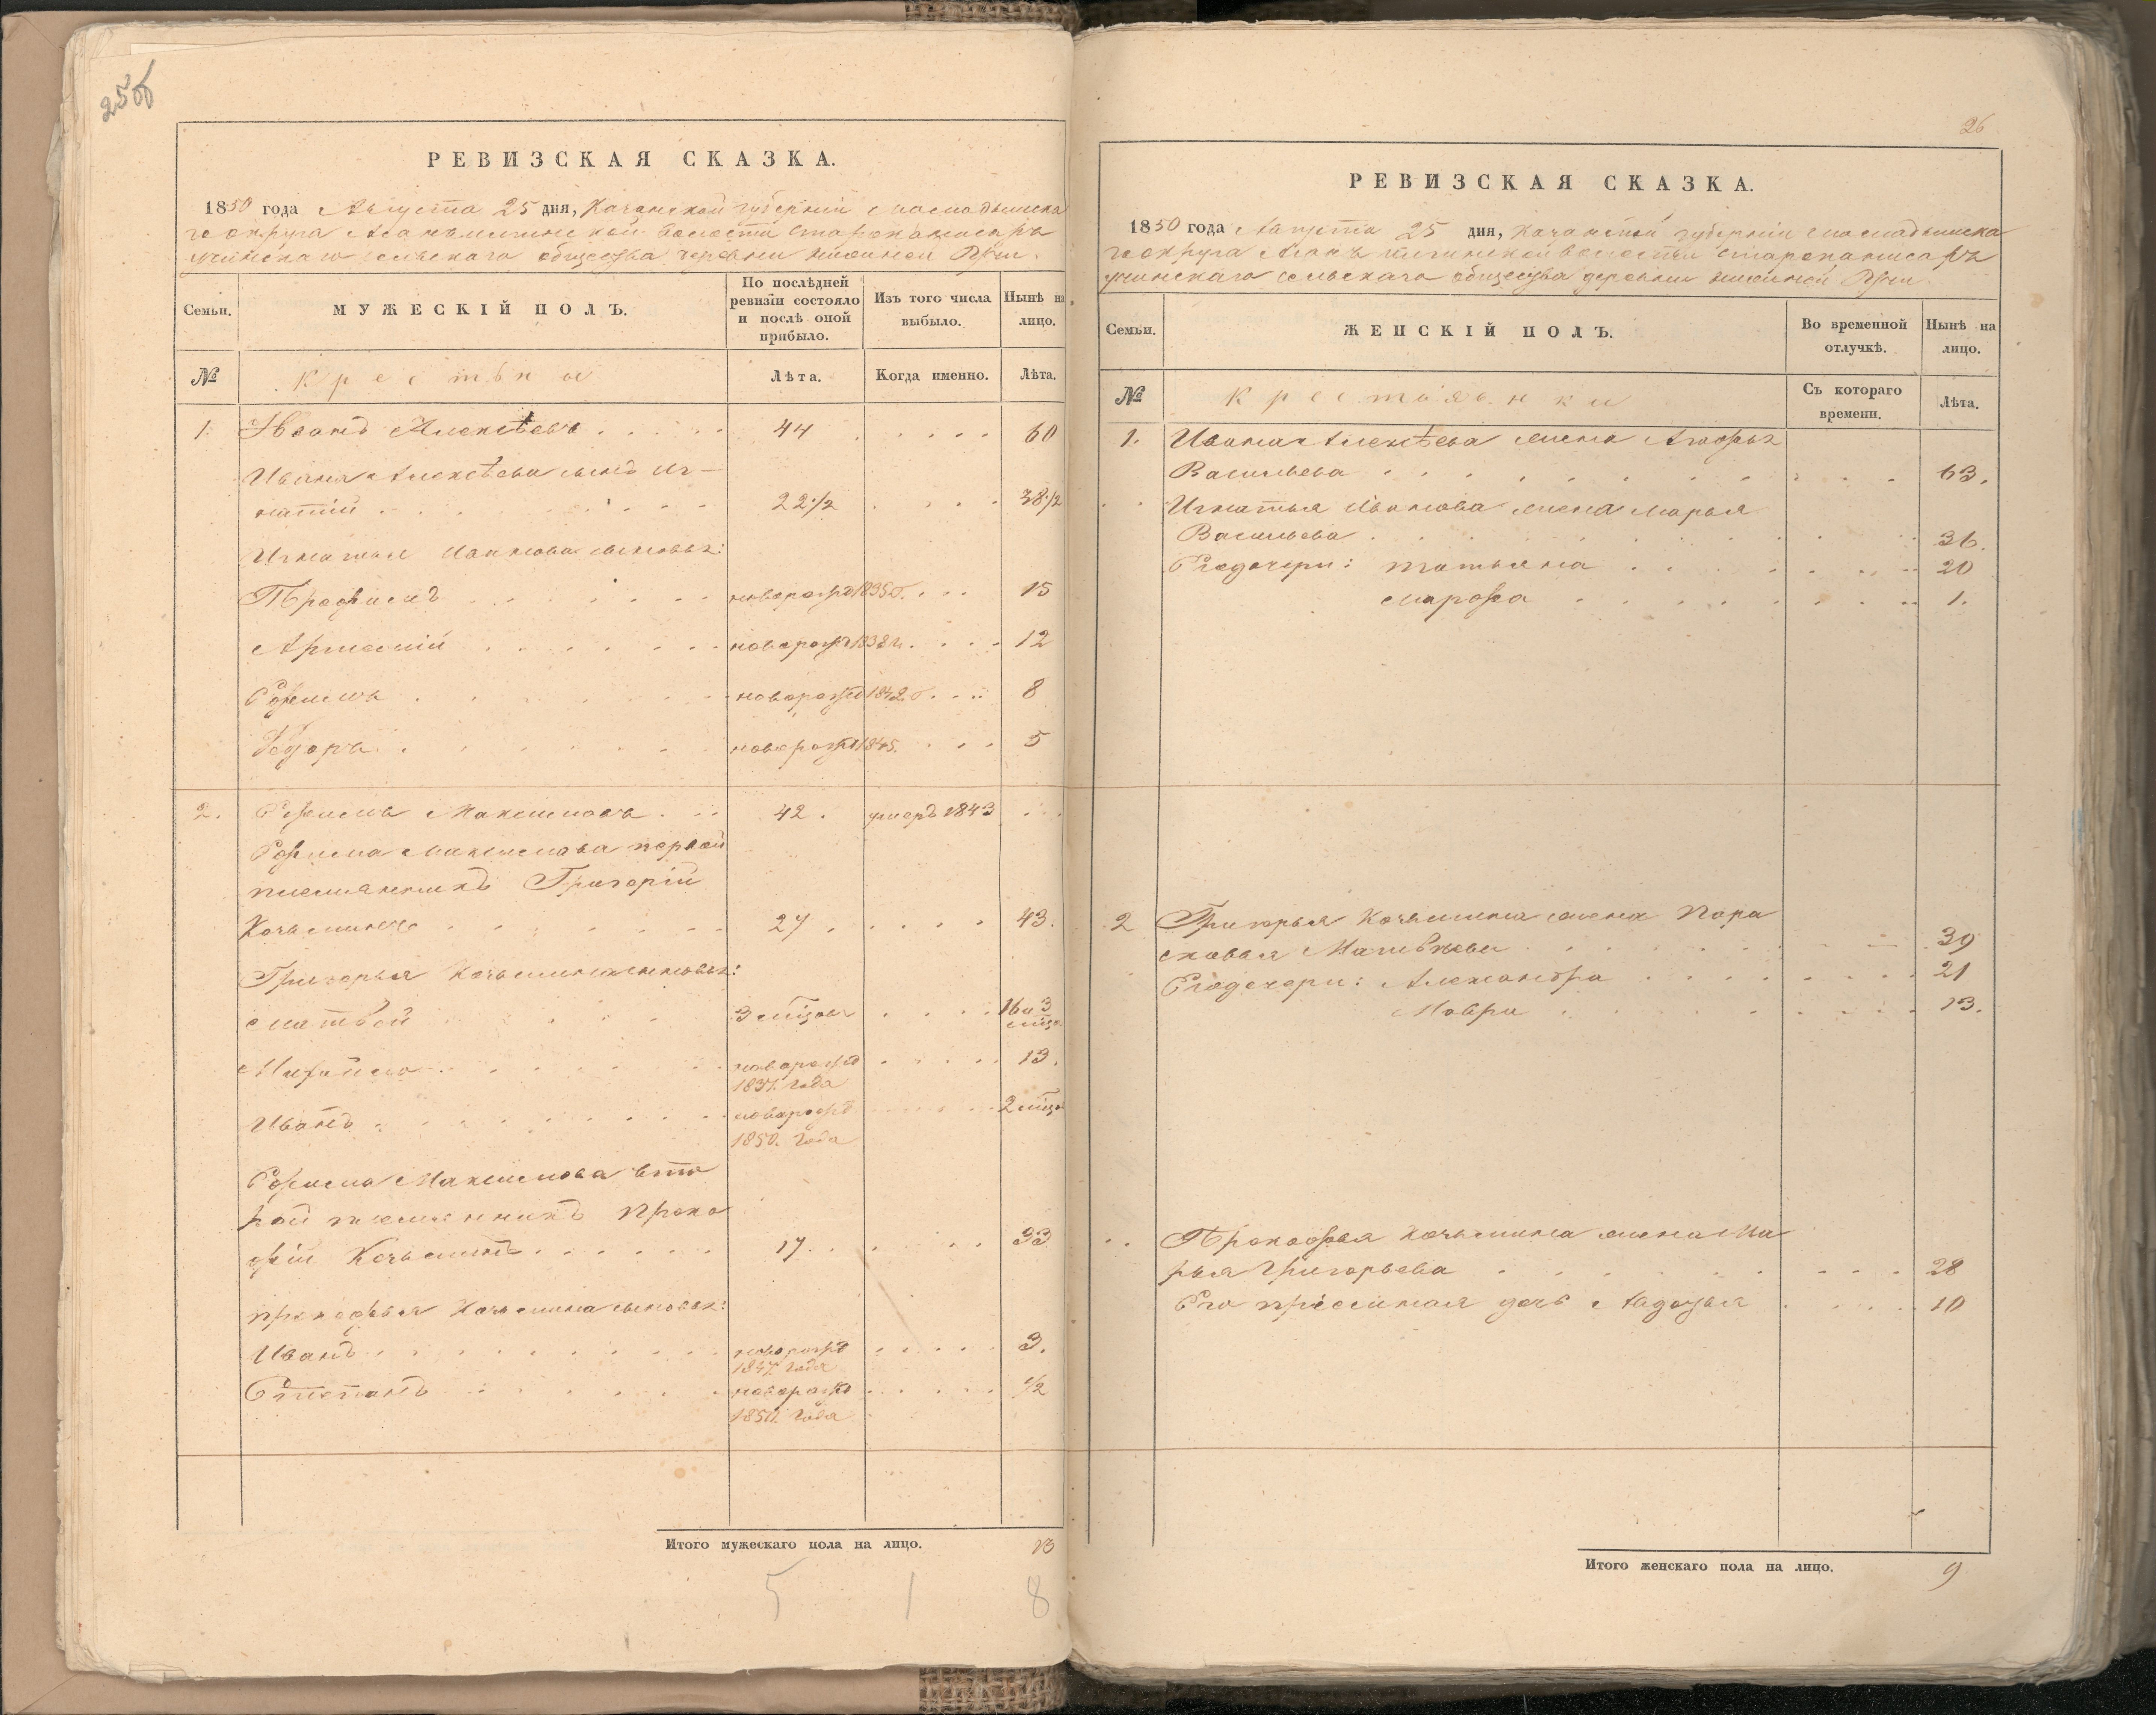 25об
РЕВИЗСКАЯ СКАЗКА.
1850 года Августа 25 дня, Казанской губернии Мамадышска
го округа волости
сельскаго общества деревни
Семьи.
МУЖЕСКІЙ ПОЛЪ.
По послѣдней ревизіи состояло и послѣ оной прибыло.
Изъ того числа выбыло.
Нынѣ на лицо.
№
Лѣта.
Когда именно.
Лѣта.
1. Иванъ Алексѣевъ 44 60
Ивана Алексѣева сынъ Иг-
натій 22 1/2 38 1/2
Игнатья Иванова сыновья:
новорожд 1835 15
новорож 1838 12
Ефимъ новорожд 1842 8
Федоръ новорожд 1845. 5
2. Ефимъ Максимовъ 42. умеръ 1843
Ефима Максимова первой
племянникъ Григорій
Козьминъ 27 43.
Григорья Козьмина сыновья:
Матвей 3 мѣсц 16 и 3 мѣсц
Михайло новорожд 13.
1837. года
Иванъ новорожд 2 мѣсц
1850. года
Ефима Максимова вто
рой племянникъ Проко
фій Козьминъ 17. 33
Прокофья Козьмина сыновья:
Иванъ новорожд 3.
1847. года
Степанъ новорожд 1/2
1850. года
Итого мужескаго пола на лицо. 13
5 1 8
26
РЕВИЗСКАЯ СКАЗКА.
1850 года Августа 25 дня, Казанской губерніи Мамадышска
го округа волости
сельскаго общества деревни
Семьи.
ЖЕНСКІЙ ПОЛЪ.
Во временной отлучкѣ.
Нынѣ на лицо.
№
Крестьянки
Съ котораго времени.
Лѣта.
1. Ивана Алексѣева жена
Васильева 63.
Игнатья Иванова жена Марья
Васильева 36.
Его дочери: Татьяна 20
Марфа 1.
2 Григорья Козьмина жена Пара
сковья Матвѣева 39
Его дочери: Александра 21
Мавра 13.
Прокофья Козьмина жена Ма
рья Григорьева 28
Его дочь 10
Итого женскаго пола на лицо. 9